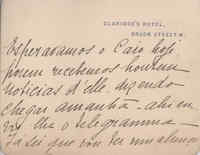 CLARIDGE'S HOTEL,
BROOK STREET. W.
Esperavamos o Caro hoje
porem recebemos hontem
noticias d'elle dizendo
chegar amanhã - ahi
vai lhe o telegramma -
Já sei que vou ter um